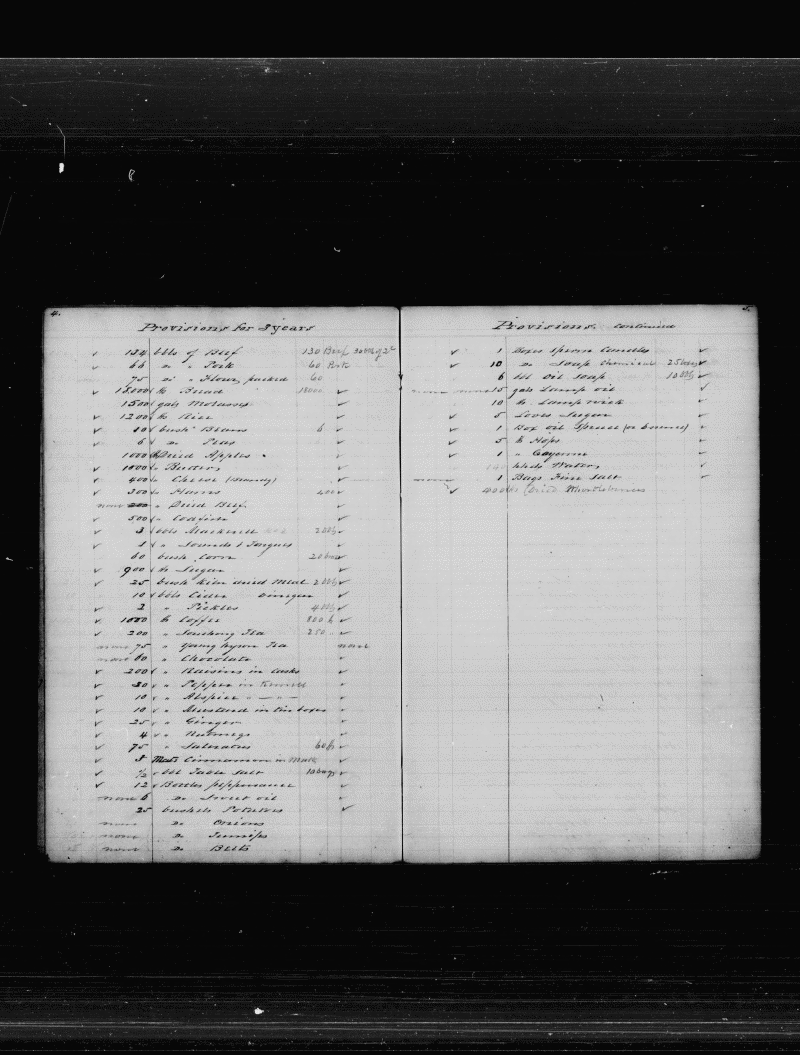 4.
Provisions for 3 years
134 bbls of Beef 130 Beef
66 do " Pork 60 Pork
75 do " Flour, packed 60
15000 lb Bread 18000
1500 gals Molasses
1200 lb Rice
10 bush Beans 6
6 " do Peas
1000 lb Dried Apples
1000 " Butter
400 " Cheese
300 " Hams 400
none " Dried Beef
500 " Codfish
3 bbls Mackerel
1 " Sounds & Tongues
60 bush Corn
900 lb Sugar
25 bush kiln dried Meal
10 bbls Cider Vinegar
2 " Pickles
1000 lb Coffee 800 lb
200 " Souchong Tea 250
none 75 " Young hyson Tea none
none 60 " Chocolate
200 " Raisins in casks
30 " Pepper in
10 " Alspice " — " —
10 " Mustard in tin boxes
25 " Ginger
4 " Nutmegs
75 " Saleratus 60
8 Mats Cinnamon in Mats
1/2 bbl Table Salt 10 bags
12 Bottles peppersauce
none 6 do Sweet oil
25 bushels Potatoes
none do Onions
none do Turnips
none do Beets
5.
Provisions continued
1 Boxes Sperm Candles
10 do Soap Chemical 25 boxes
6 bbl oil Soap 10 bbls
none 15 gals Lamp oil
10 lb Lamp wick
5 Loves Sugar
1 Box oil Spruce
5 lb Hops
1 " Cayenne
bbls Water
none 1 Bags Fine Salt
400 lbs Dried Whortleberries